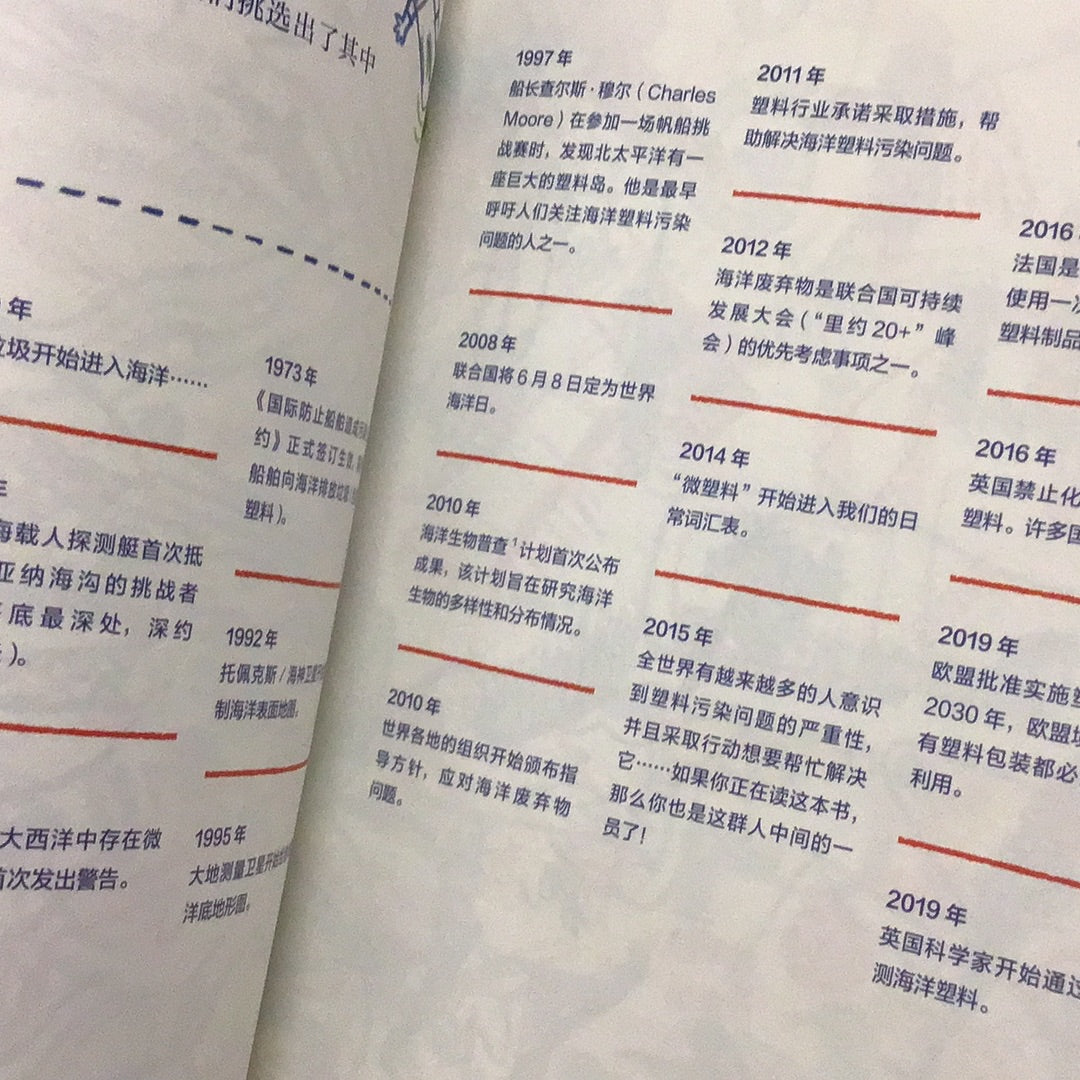 们挑选出了其中
年
垃圾开始进入海洋……
年
海载人探测艇首次抵
亚纳海沟的挑战者
底最深处，深约
）。
大西洋中存在微
首次发出警告。
1973年
《国际防止船舶造成污
约》正式签订生效，
船舶向海洋排放垃圾
塑料）。
1992年
托佩克斯/海神卫星
制海洋表面地图。
1995年
大地测量卫星开始
洋底地形图。
1997年
船长查尔斯·穆尔（Charles
Moore）在参加一场帆船挑
战赛时，发现北太平洋有一
座巨大的塑料岛。他是最早
呼吁人们关注海洋塑料污染
问题的人之一。
2008年
联合国将6月8日定为世界
海洋日。
2010年
海洋生物普查1计划首次公布
成果，该计划旨在研究海洋
生物的多样性和分布情况。
2010年
世界各地的组织开始颁布指
导方针，应对海洋废弃物
问题。
2011年
塑料行业承诺采取措施，帮
助解决海洋塑料污染问题。
2012年
海洋废弃物是联合国可持续
发展大会（“里约20+”峰
会）的优先考虑事项之一。
2014年
“微塑料”开始进入我们的日
常词汇表。
2015年
全世界有越来越多的人意识
到塑料污染问题的严重性，
并且采取行动想要帮忙解决
它……如果你正在读这本书，
那么你也是这群人中间的一
员了！
2016
法国是
使用一次
塑料制品
2016年
英国禁止化
塑料。许多国
2019年
欧盟批准实施塑
2030年，欧盟境
有塑料包装都必
利用。
2019年
英国科学家开始通过
测海洋塑料。